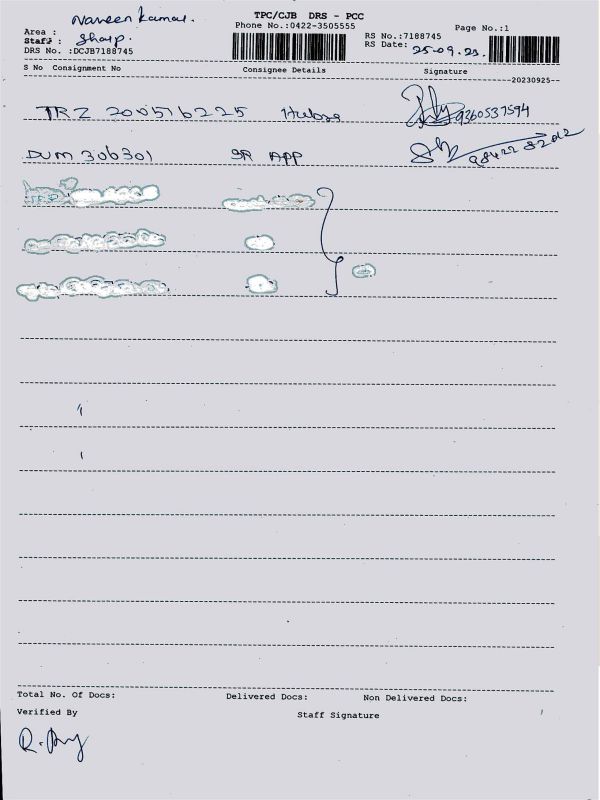 Naveen Kumar.
TPC/CJB DRS - PCC
Area :
Phone No.:0422-3505555
RS No.:7188745
Page No.:1
Staff : Sharp.
RS Date: 25-09-23
DRS No. :DCJB7188745
S No Consignment No Consignee Details Signature
20230925
TRZ 200516225 9360537594
DUM 306301 SR APP 98422 82012
Total No. Of Docs: Delivered Docs: Non Delivered Docs:
Verified By Staff Signature